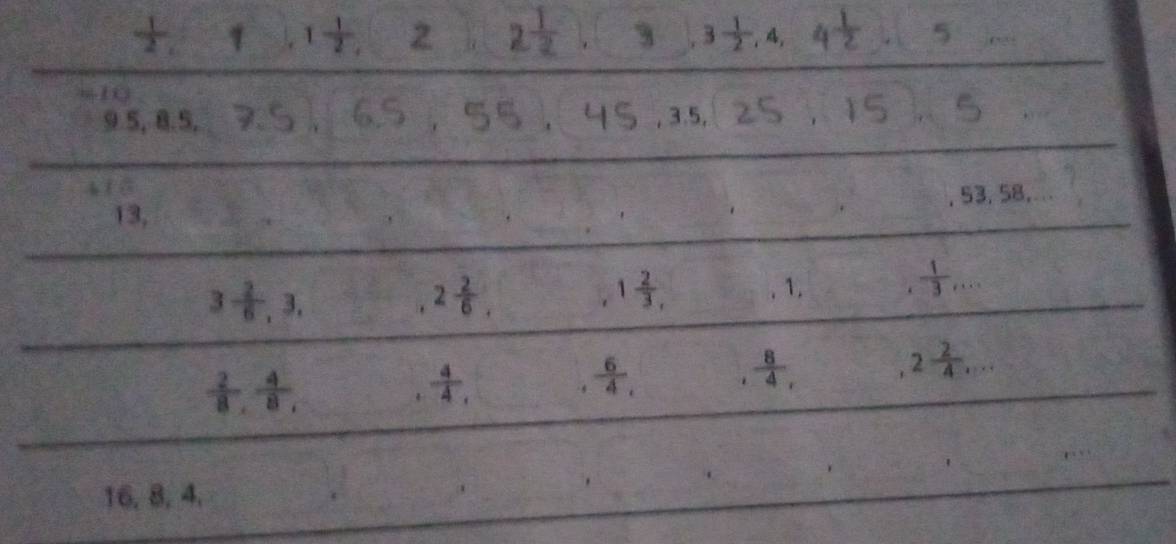 1/2, 1, 1 1/2, 2, 2 1/2, 3, 3 1/2, 4, 4 1/2, 5 ....
-10
9.5, 8.5, 7.5, 6.5, 55, 45, 3.5, 25, 15, 5 ...
13, , , , , , , , 53, 58,... ?
3 2/6, 3, , 2 2/6, , 1 2/3, , 1, , 1/3,...
2/8, 4/8, , 4/4, , 6/4, , 8/4, , 2 2/4,...
16, 8, 4, , , , , , , ,...